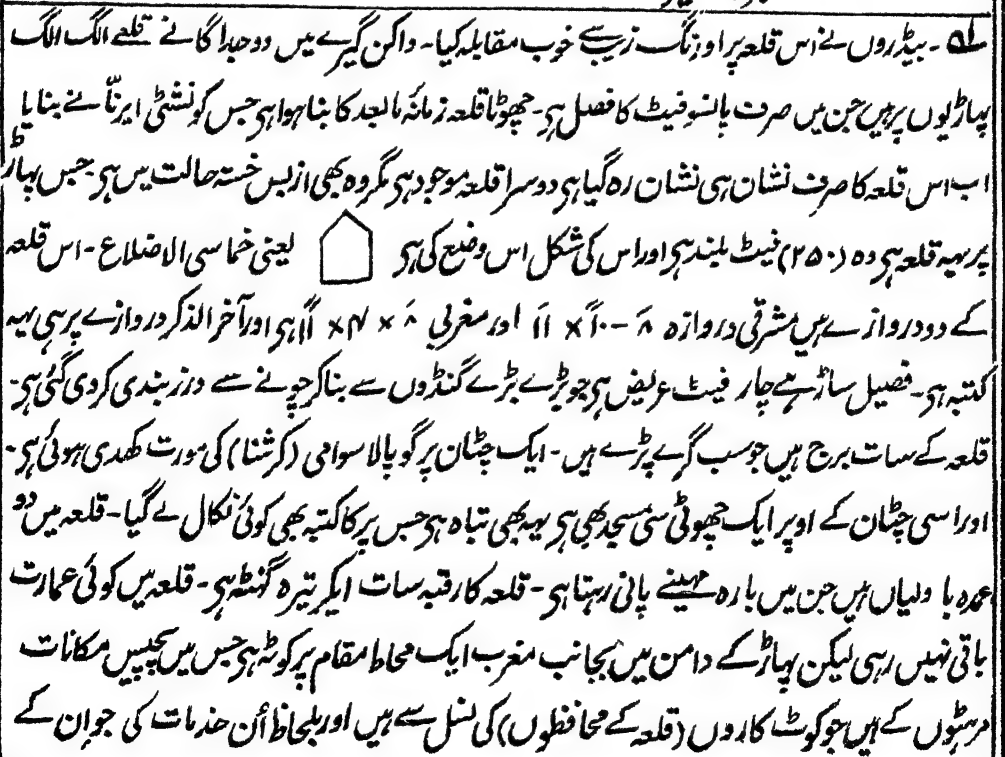 ۵۱۔ بیڈروں نے اس قلعہ پر اورنگ زیب سے خوب مقابلہ کیا۔ واکن گیرے میں دو جداگانے قلعے الگ الگ
پہاڑیوں پر ہیں جن میں صرف پانسو فیٹ کا فصل ہی۔ چھوٹا قلعہ زمانۂ مابعد کا بنا ہوا ہی جس کو نشٹی ایرنّا نے بنایا
اب اس قلعہ کا صرف نشان ہی نشان رہ گیا ہی دوسرا قلعہ موجود ہی مگر وہ بھی از بس خستہ حالت میں ہی جس پہاڑ
پر یہہ قلعہ ہی وہ (۲۵۰) فیٹ بلند ہی اور اس کی شکل اس وضع کی ہی یعنی خماسی الاضلاع۔ اس قلعہ
کے دو دروازے ہیں مشرقی دروازہ ۸ – ۱۰ × ۱۱ اور مغربی ۸ × ۴ × ۱۱ ہی اور آخر الذکر دروازے پر ہی یہہ
کتبہ ہی۔ فصیل ساڑھے چار فیٹ عریض ہی جو بڑے بڑے گنڈوں سے بنا کر چونے سے درز بندی کردی گئی ہی۔
قلعہ کے سات برج ہیں جو سب گرے پڑے ہیں۔ ایک چٹان پر گوپالا سوامی (کرشنا) کی مورت کھدی ہوئی ہی۔
اور اسی چٹان کے اوپر ایک چھوٹی سی مسجد بھی ہی یہہ بھی تباہ ہی جس پر کا کتبہ بھی کوئی نکال لے گیا۔ قلعہ میں دو
عمدہ باولیاں ہیں جن میں بارہ مہینے پانی رہتا ہی۔ قلعہ کا رقبہ سات ایکر تیرہ گنٹہ ہی۔ قلعہ میں کوئی عمارت
باقی نہیں رہی لیکن پہاڑ کے دامن میں بجانب مغرب ایک محاط مقام پر کوٹہ ہی جس میں پچیس مکانات
مرہٹوں کے ہیں جو کوٹ کاروں (قلعہ کے محافظوں) کی نسل سے ہیں اور بلحاظ اُن خدمات کی جو ان کے